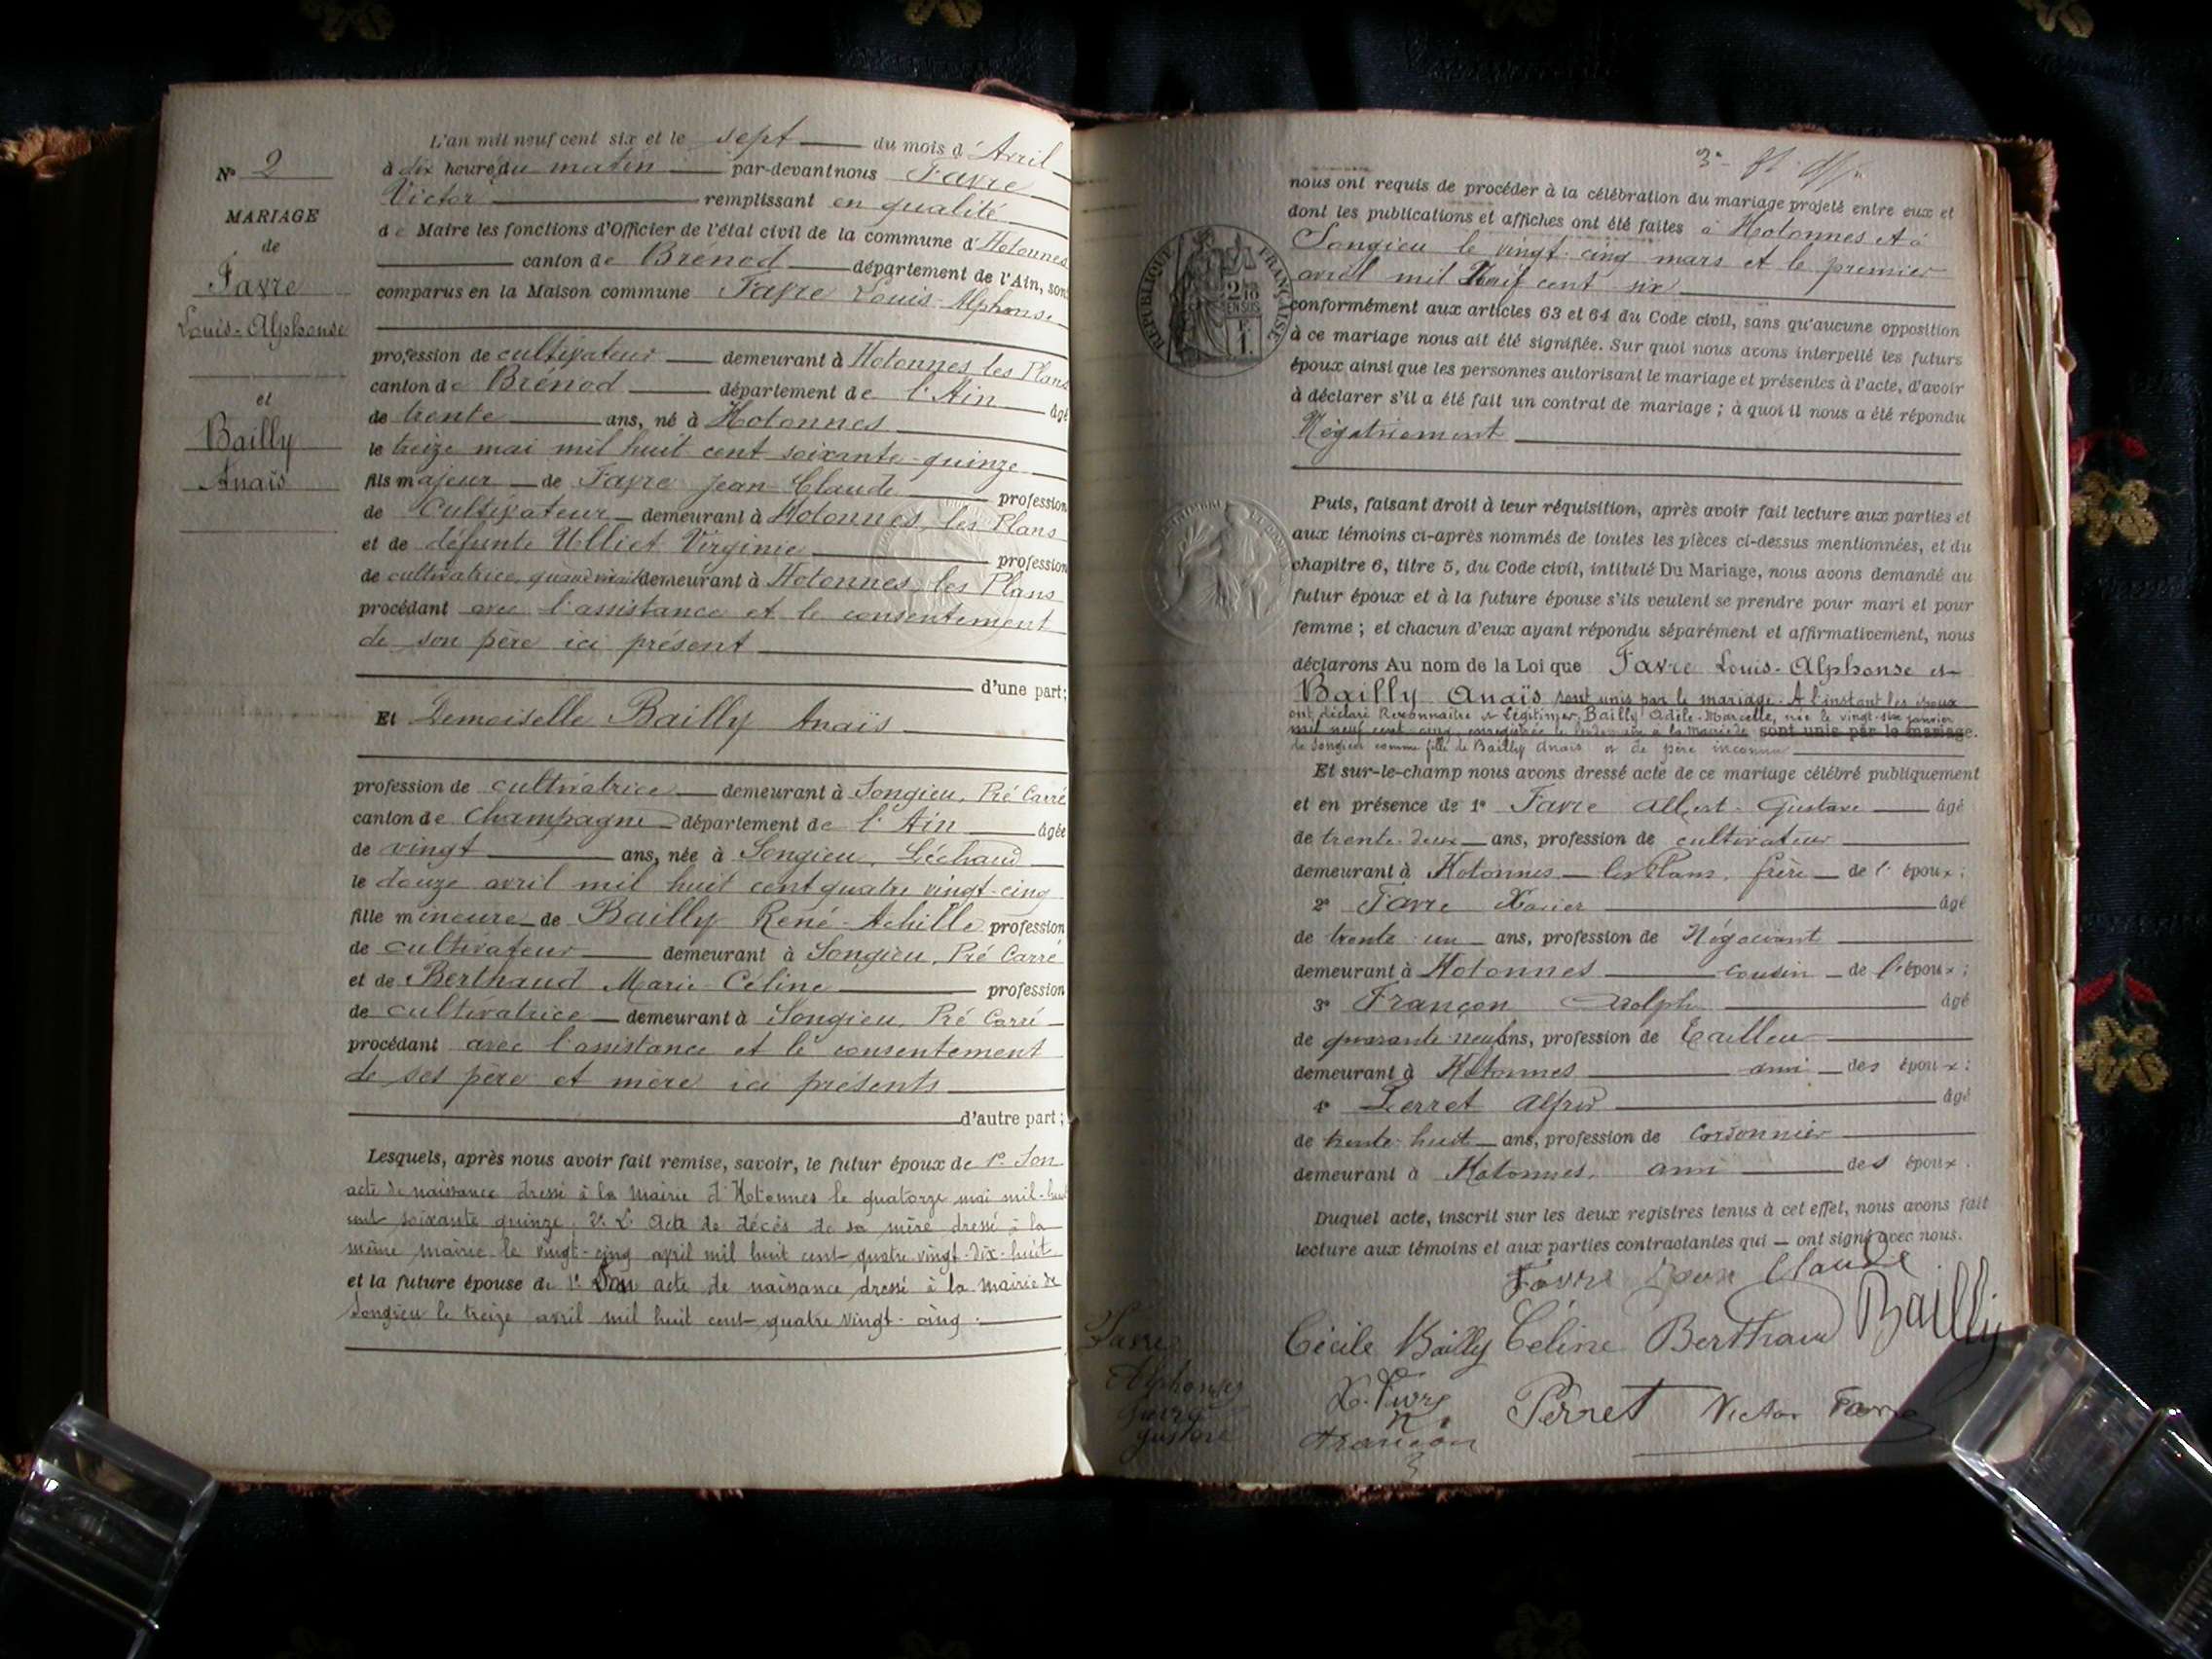 N° 2
MARIAGE
de
Favre
Louis-Alphonse
et
Bailly
Anaïs
L'an mil neuf cent six et le sept du mois d'Avril
à dix heures du matin par-devant nous Favre
Victor remplissant en qualité
de Maire les fonctions d'Officier de l'état civil de la commune d'Hotonnes
canton de Brénod département de l'Ain, sont
comparus en la Maison commune Favre Louis-Alphonse
profession de cultivateur demeurant à Hotonnes les Plans
canton de Brénod département de l'Ain âgé
de trente ans, né à Hotonnes
le treize mai mil huit cent soixante-quinze
fils majeur de Favre Jean-Claude profession
de Cultivateur demeurant à Hotonnes, les Plans
et de défunte Ulliet Virginie profession
de cultivatrice, quand vivait demeurant à Hotonnes, les Plans
procédant avec l'assistance et le consentement
de son père ici présent
d'une part;
Et Demoiselle Bailly Anaïs
profession de cultivatrice demeurant à Songieu, Pré Carré
canton de Champagne département de l'Ain âgée
de vingt ans, née à Songieu, Léchaud
le douze avril mil huit cent quatre vingt-cinq
fille mineure de Bailly René-Achille profession
de cultivateur demeurant à Songieu, Pré Carré
et de Berthaud Marie-Céline profession
de cultivatrice demeurant à Songieu, Pré Carré
procédant avec l'assistance et le consentement
de ses père et mère ici présents
d'autre part;
Lesquels, après nous avoir fait remise, savoir, le futur époux de 1° Son
acte de naissance dressé à la mairie d'Hotonnes le quatorze mai mil-huit
cent soixante quinze. 2° L'acte de décès de sa mère dressé à la
même mairie le vingt-cinq avril mil huit cent quatre vingt-dix-huit
et la future épouse de 1° Son acte de naissance dressé à la mairie de
Songieu le treize avril mil huit cent quatre vingt-cinq.
nous ont requis de procéder à la célébration du mariage projeté entre eux et
dont les publications et affiches ont été faites à Hotonnes et à
Songieu le vingt-cinq mars et le premier
avril mil neuf cent six
conformément aux articles 63 et 64 du Code civil, sans qu'aucune opposition
à ce mariage nous ait été signifiée. Sur quoi nous avons interpellé les futurs
époux ainsi que les personnes autorisant le mariage et présentes à l'acte, d'avoir
à déclarer s'il a été fait un contrat de mariage; à quoi il nous a été répondu
Négativement
RÉPUBLIQUE FRANÇAISE
Puis, faisant droit à leur réquisition, après avoir fait lecture aux parties et
aux témoins ci-après nommés de toutes les pièces ci-dessus mentionnées, et du
chapitre 6, titre 5, du Code civil, intitulé Du Mariage, nous avons demandé au
futur époux et à la future épouse s'ils veulent se prendre pour mari et pour
femme; et chacun d'eux ayant répondu séparément et affirmativement, nous
déclarons Au nom de la Loi que Favre Louis-Alphonse et
Bailly Anaïs sont unis par le mariage. A l'instant les époux
ont déclaré Reconnaître et Légitimer, Bailly Adèle-Marcelle, née le vingt-six janvier
mil neuf cent cinq enregistrée le lendemain à la mairie de sont unis par le mariage.
de Songieu comme fille de Bailly Anaïs et de père inconnu
Et sur-le-champ nous avons dressé acte de ce mariage célébré publiquement
et en présence de 1° Favre Albert-Gustave âgé
de trente-deux ans, profession de cultivateur
demeurant à Hotonnes les Plans, frère de l'époux;
2° Favre Xavier âgé
de trente-un ans, profession de Négociant
demeurant à Hotonnes cousin de l'époux;
3° Françon Adolphe âgé
de quarante neuf ans, profession de Tailleur
demeurant à Hotonnes ami des époux;
4° Perret Alfred âgé
de trente-huit ans, profession de Cordonnier
demeurant à Hotonnes, ami des époux.
Duquel acte, inscrit sur les deux registres tenus à cet effet, nous avons fait
lecture aux témoins et aux parties contractantes qui ont signé avec nous.
Favre Jean Claude
Favre Cécile Bailly Céline Berthaud Bailly
Alphonse
Favre
Gustave
X. Favre Perret Victor Favre
Françon